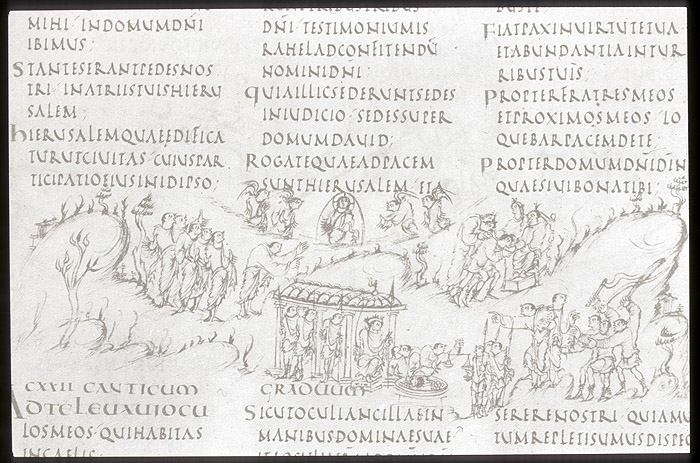 MIHI INDOMUMDN̄I
IBIMUS;
STANTESERANTPEDESNOS
TRI INATRIISTUISHIERU
SALEM;
HIERUSALEMQUAEEDIFICA
TURUTCIUITAS CUIUSPAR
TICIPATIOEIUSINIDIPSO;
DN̄I TESTIMONIUMIS
RAHELADCONFITENDŪ
NOMINIDN̄I;
QUIAILLICSEDERUNTSEDES
INIUDICIO SEDESSUPER
DOMUMDAUID;
ROGATEQUAEADPACEM
SUNTHIERUSALEM ETA
FIATPAXINUIRTUTETUA
ETABUNDANTIAINTUR
RIBUSTUIS;
PROPTERFRATRESMEOS
ETPROXIMOSMEOS LO
QUEBARPACEMDETE;
PROPTERDOMUMDN̄IDIN
QUAESIUIBONATIBI;
CXXII CANTICUM GRADUUM
ADTELEUAUIOCU
LOSMEOS QUIHABITAS
INCAELIS
SICUTOCULIANCILLAEIN
MANIBUSDOMINAESUAE
SERERENOSTRI QUIAMU
TUMREPLETISUMUSDISPEC